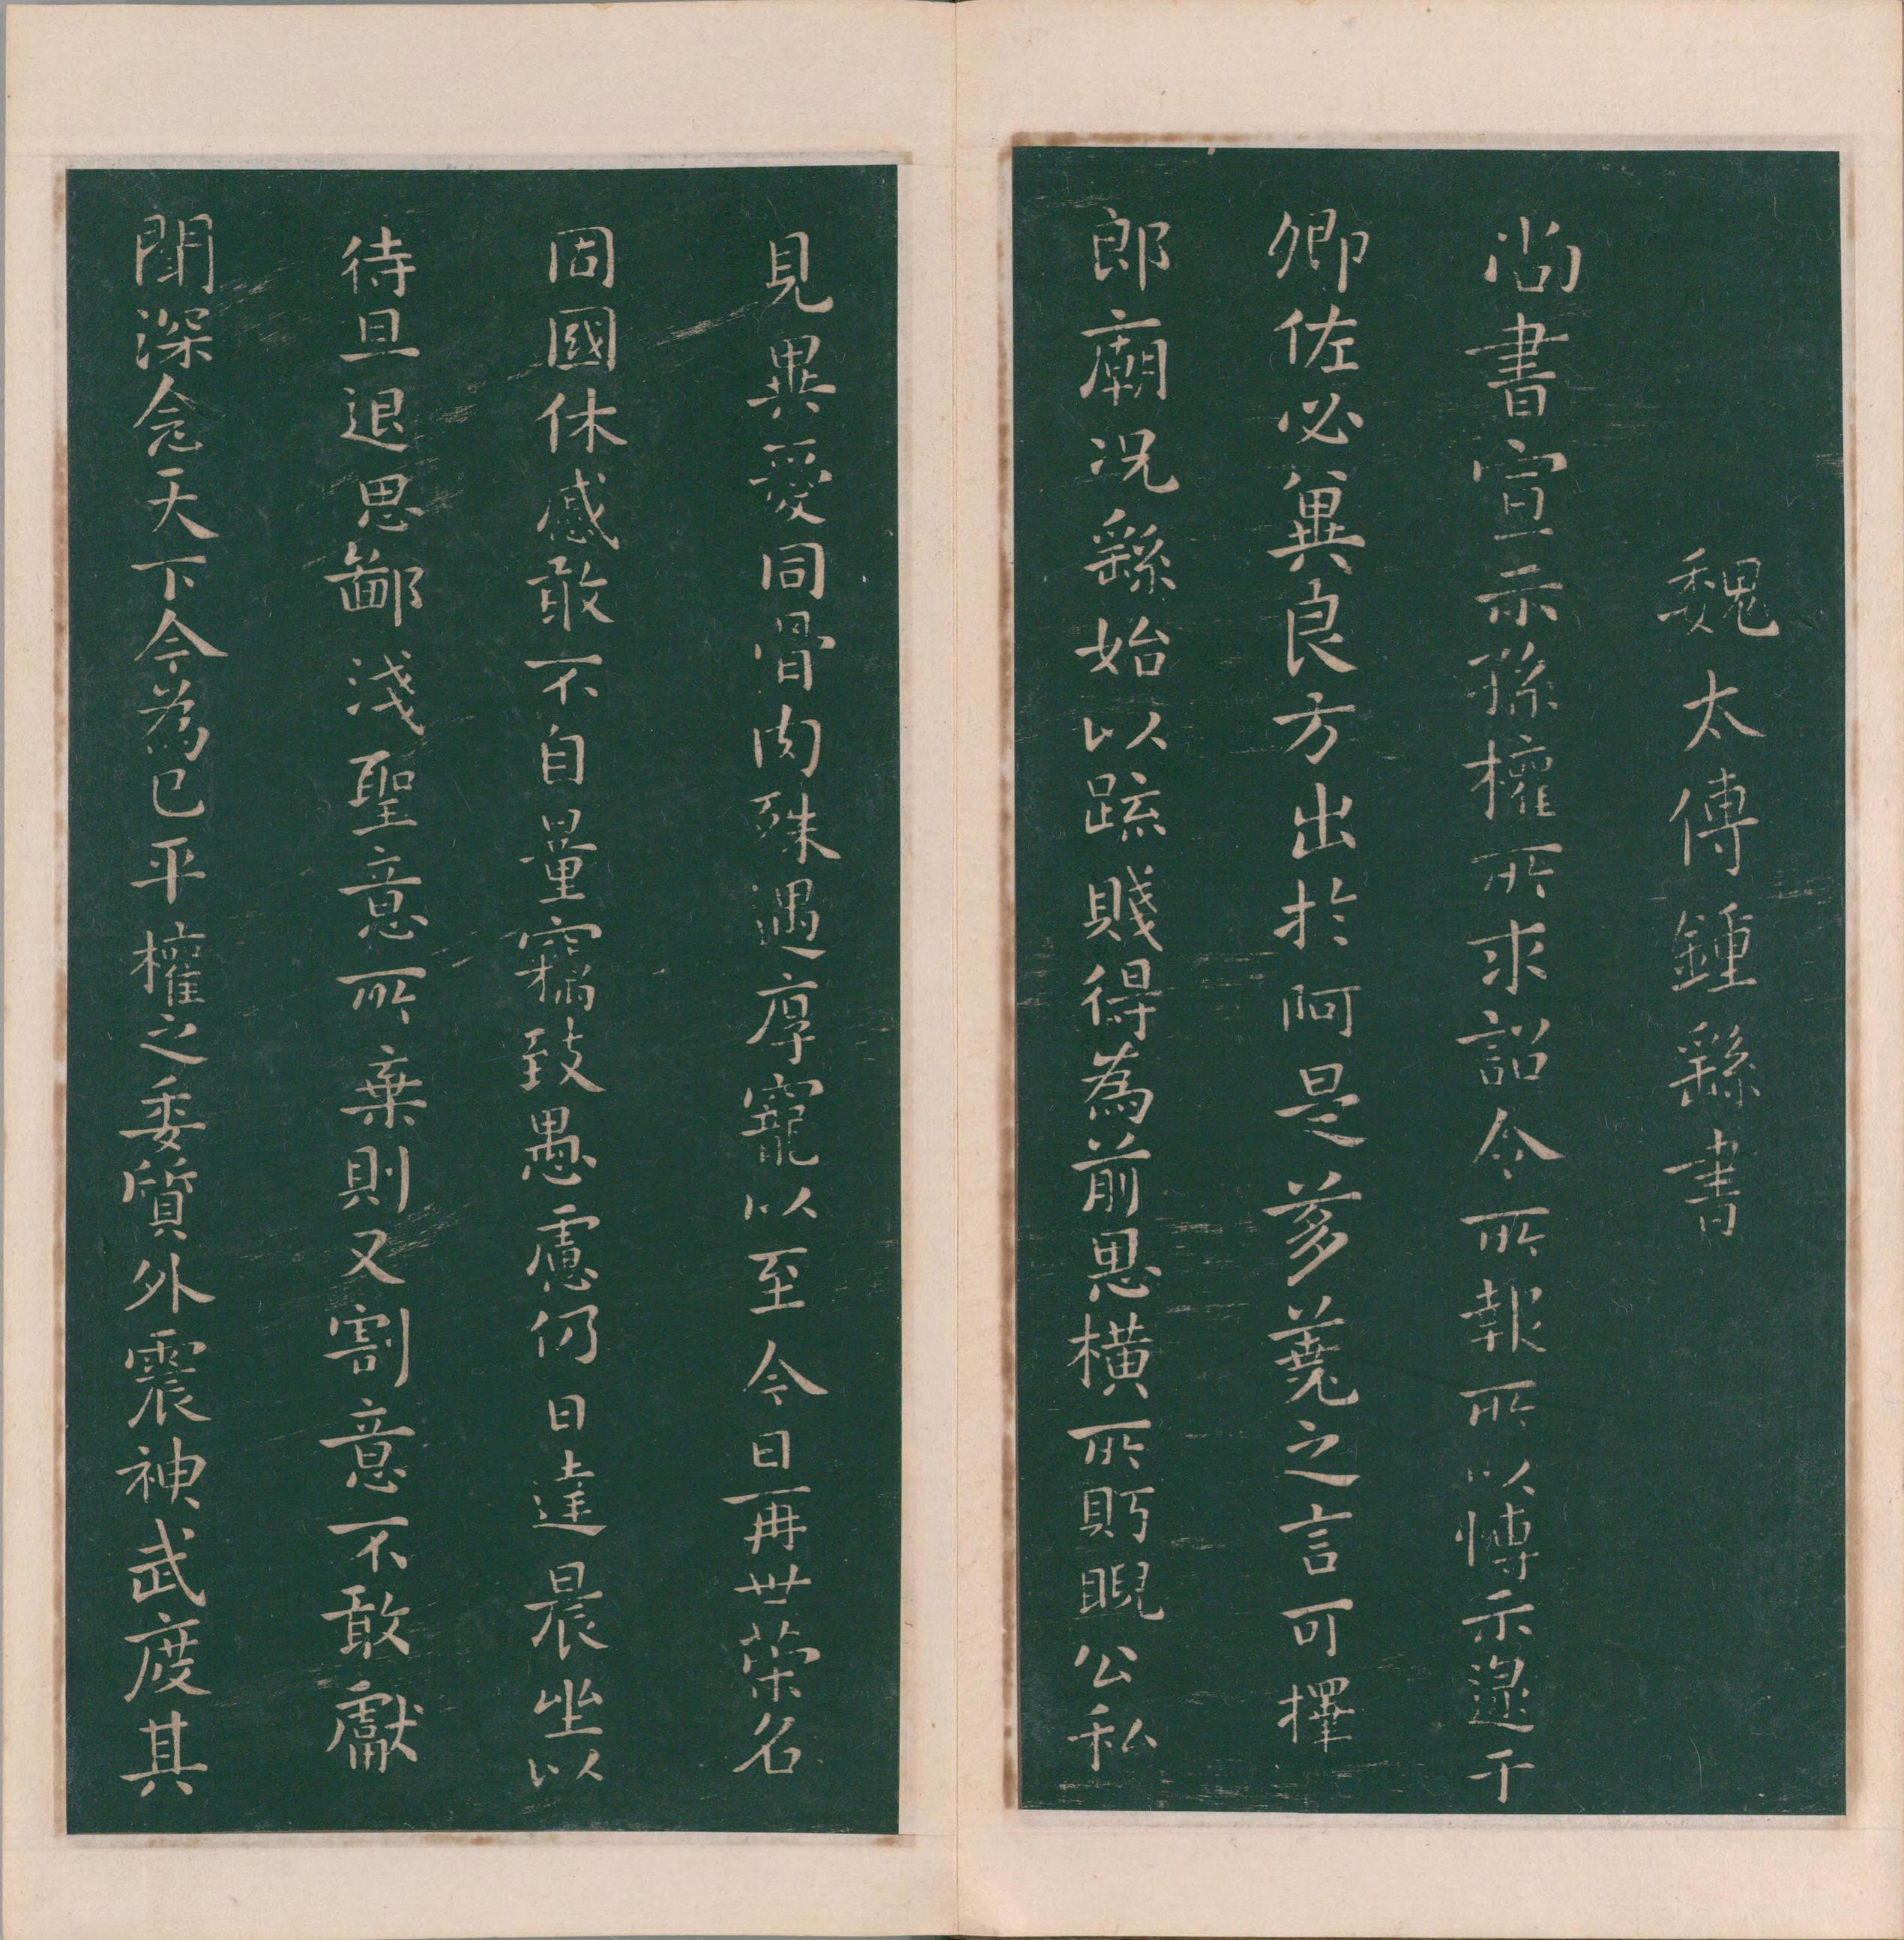 魏太傅鍾繇書
尚書宣示孫權所求詔令所報所以博示逮于
卿佐必冀良方出於阿是芻蕘之言可擇
郎廟況繇始以疏賤得為前恩橫所眄睨公私
見異愛同骨肉殊遇厚寵以至今日再世榮名
同國休慼敢不自量竊致愚慮仍日達晨坐以
待旦退思鄙淺聖意所棄則又割意不敢獻
聞深念天下今為已平權之委質外震神武度其